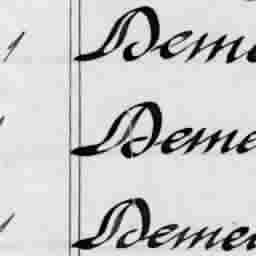 1 Deme
Deme
Deme